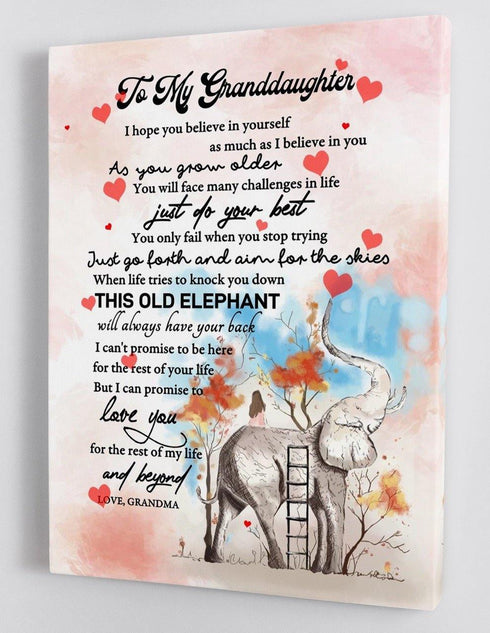 To My Granddaughter
I hope you believe in yourself
as much as I believe in you
As you grow older
You will face many challenges in life
just do your best
You only fail when you stop trying
Just go forth and aim for the skies
When life tries to knock you down
THIS OLD ELEPHANT
will always have your back
I can't promise to be here
for the rest of your life
But I can promise to
love you
for the rest of my life
and beyond
LOVE, GRANDMA